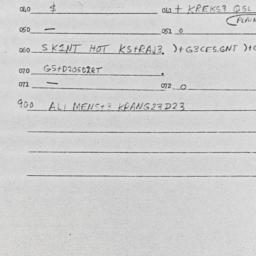 040 $ 041 + KREKS3 QSL
(PLAIN
050 — 051 0
060 SKINT HOT KS+RA13 )+G3CES.GNT )+
070 GS+D205D2RT .
071 — 072 0
900 ALI MENS+3 KRANG23D23